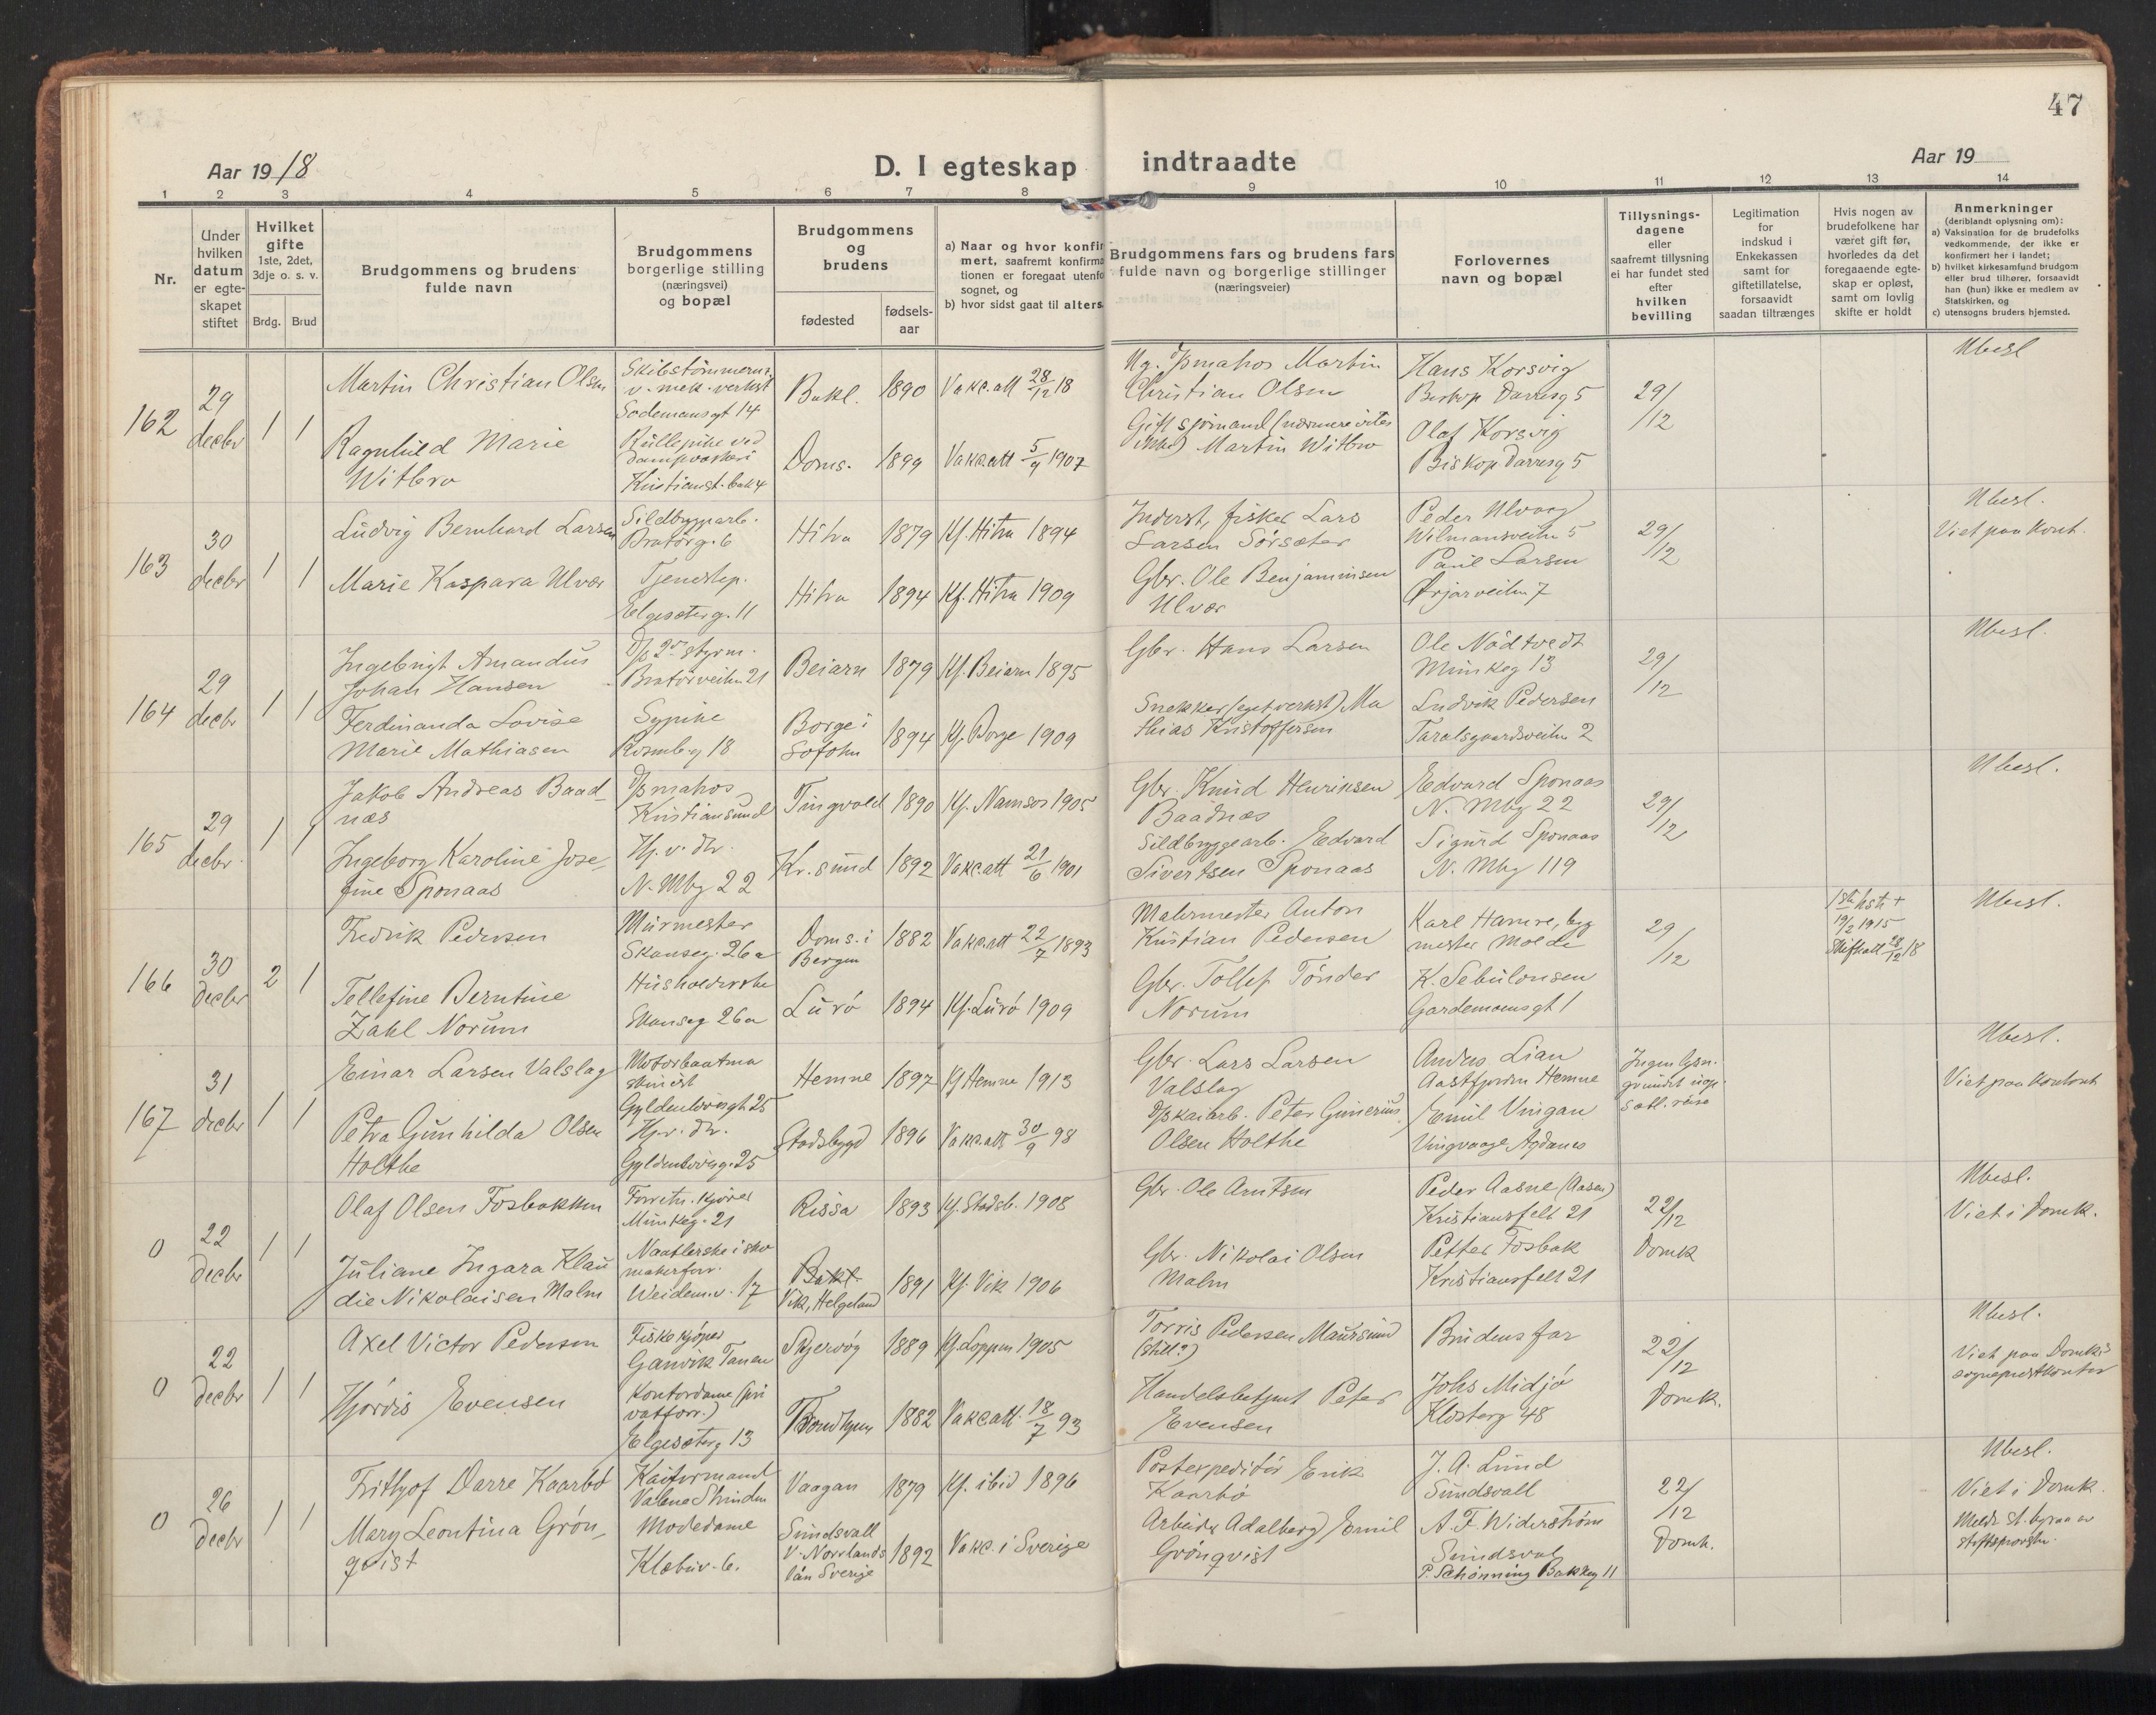 47
Aar 19 18
D. I egteskap indtraadte
Aar 19
1 2 3 4 5 6 7 8 9 10 11 12 13 14
Nr.
Under hvilken datum er egteskapet stiftet
Hvilket gifte 1ste, 2det, 3dje o. s. v.
Brdg. Brud
Brudgommens og brudens fulde navn
Brudgommens borgerlige stilling (næringsvei) og bopæl
Brudgommens og brudens
fødested
fødselsaar
a) Naar og hvor konfirmert, saafremt konfirmationen er foregaat utenfo sognet, og
b) hvor sidst gaat til alters.
Brudgommens fars og brudens fars fulde navn og borgerlige stillinger (næringsveier)
Forlovernes navn og bopæl
Tillysningsdagene eller saafremt tillysning ei har fundet sted efter hvilken bevilling
Legitimation for indskud i Enkekassen samt for giftetillatelse, forsaavidt saadan tiltrænges
Hvis nogen av brudefolkene har været gift før, hvorledes da det foregaaende egteskap er opløst, samt om lovlig skifte er holdt
Anmerkninger
(deriblandt oplysning om):
a) Vaksination for de brudefolks vedkommende, der ikke er konfirmert her i landet;
b) hvilket kirkesamfund brudgom eller brud tilhører, forsaavidt han (hun) ikke er medlem av Statskirken, og
c) utensogns bruders hjemsted.
162
29 decbr
1 1
Martin Christian Olsen
v. mek. verkst
Sodemansgt 14
Bakl.
1890
Vakc.att 28/12 18
Martin
Christian Olsen
Hans Korsvig
Biskop Darresg 5
29/12
Ubesl
Ragnhild Marie
Witbro
Rullepike ved
Dampvaskeri
Doms.
1899
Vakc.att 5/9 1907
Martin Witbro
Olaf Korsvig
Biskop Darresg 5
163
30 decbr
1 1
Ludvig Bernhard Larsen
Sildbryggarb.
Bratörg. 6
Hitra
1879
Kf. Hitra 1894
Inderst, fisker Lars
Larsen Sörsæter
Peder Ulvaag
Wilmansveiten 5
29/12
Ubesl.
Viet paa kont.
Marie Kaspara Ulvær
Tjenstep.
Elgesæterg. 11
Hitra
1894
Kf. Hitra 1909
Gbr. Ole Benjaminsen
Ulvær
Paul Larsen
Ørjarveiten 7
164
29 decbr
1 1
Ingebrigt Amandus
Johan Hansen
D/p 2n styrm.
Bratörveiten 21
Beiarn
1879
Kf. Beiarn 1895
Gbr. Hans Larsen
Ole Nödtvedt
Munkeg 13
29/12
Ubesl.
Ferdinanda Lovise
Marie Mathiasen
Sypike
Rosenb.g 18
Borge i
Lofoten
1894
Kf. Borge 1909
Snekker (eget verkst) Ma
thias Kristoffersen
Ludvik Pedersen
Taralsgaardsveiten 2
165
29 decbr.
1 1
Jakob Andreas Baad-
næs
D/p matros
Kristiansund
Tingvold
1890
Kf. Namsos 1905
Gbr. Knud Henriksen
Baadnæs
Edvard Sponaas
N. Mbg 22
29/12
Ubesl.
Ingeborg Karoline Jose-
fine Sponaas
Hj. v. dtr.
N. Mbg 22
Kr.sund
1892
Vakc.att 21/6 1901
Sildbryggearb. Edvard
Sivertsen Sponaas
Sigurd Sponaas
N. Mbg 119
166
30 decbr
2 1
Fredrik Pedersen
Murmester
Skanseg. 26a
Doms. i
Bergen
1882
Vakc.att 22/7 1893
Malermester Anton
Kristian Pedersen
Karl Hamre, byg
mester Molde
29/12
19/2 1915
Skifteatt 28/12 18
Ubesl.
Tellefine Berntine
Zahl Norum
Husholderske
Skanseg 26a
Lurö
1894
Kf. Lurö 1909
Gbr. Tollef Tönder
Norum
K. Sebulonsen
Gardemoensgt 1
167
31 decbr
1 1
Einar Larsen Valslag
Motorbaatma
skinist
Gyldenlövesgt 25
Hemne
1897
Kf Hemne 1913
Gbr. Lars Larsen
Valslag
Anders Lian
Aastfjorden Hemne
Ingen lysn.
Ubesl.
Viet paa kontoret
Petra Gunhilda Olsen
Holthe
Hj. v. dtr.
Gyldenlövesg. 25
Stadsbygd
1896
Vakc.att 30/9 98
Peter Gunerius
Olsen Holthe
Emil Vingan
Vingvaage Agdenes
0
22 decbr
1 1
Olaf Olsen Fosbakken
Forretn. kjörer
Munkeg. 21
Rissa
1893
Kf. Stadsb. 1908
Gbr. Ole Arntsen
Peder Aasne (Aasen)
Kristiansfelt 21
22/12
Domk
Ubesl.
Viet i Domk.
Juliane Ingara Klau
die Nikolaisen Malm
Naatlerske i sko
makerforr.
Weidem.v. 17
Bakl.
Vik, Helgeland
1891
Kf. Vik 1906
Gbr. Nikolai Olsen
Malm
Petter Fosbak
Kristiansfelt 21
0
22 decbr
1 1
Axel Victor Pedersen
Fiskekjöper
Ganvik Tanen
Skjervöy
1889
Kf. Loppen 1905
Torris Pedersen Maursund
(still?)
Brudens far
22/12
Domk.
Ubesl.
Viet paa Domk.s
sogneprestkontor
Hjördis Evensen
Kontordame (pri
vatforr.)
Elgesæterg 13
Trondhjem
1882
Vakc.att. 18/7 93
Handelsbetjent Peter
Evensen
Johs Midjö
Klosterg 48
0
26 decbr
1 1
Frithjof Darre Kaarbö
Kaiformand
Vaagan
1879
Kf. ibid 1896
Postexpeditör Erik
Kaarbö
J. A. Lund
Sundsvall
22/12
Domk.
Ubesl.
Viet i Domk.
Mary Leontina Grön-
qvist
Modedame
Klæbuv. 6.
Sundsvall
V. Norrlands
län Sverige
1892
Vakc. i Sverige
Arbeider Adalberg Emil
Grönqvist
A. F. Widerström
Sundsval
P. Schönning Bakkeg 11